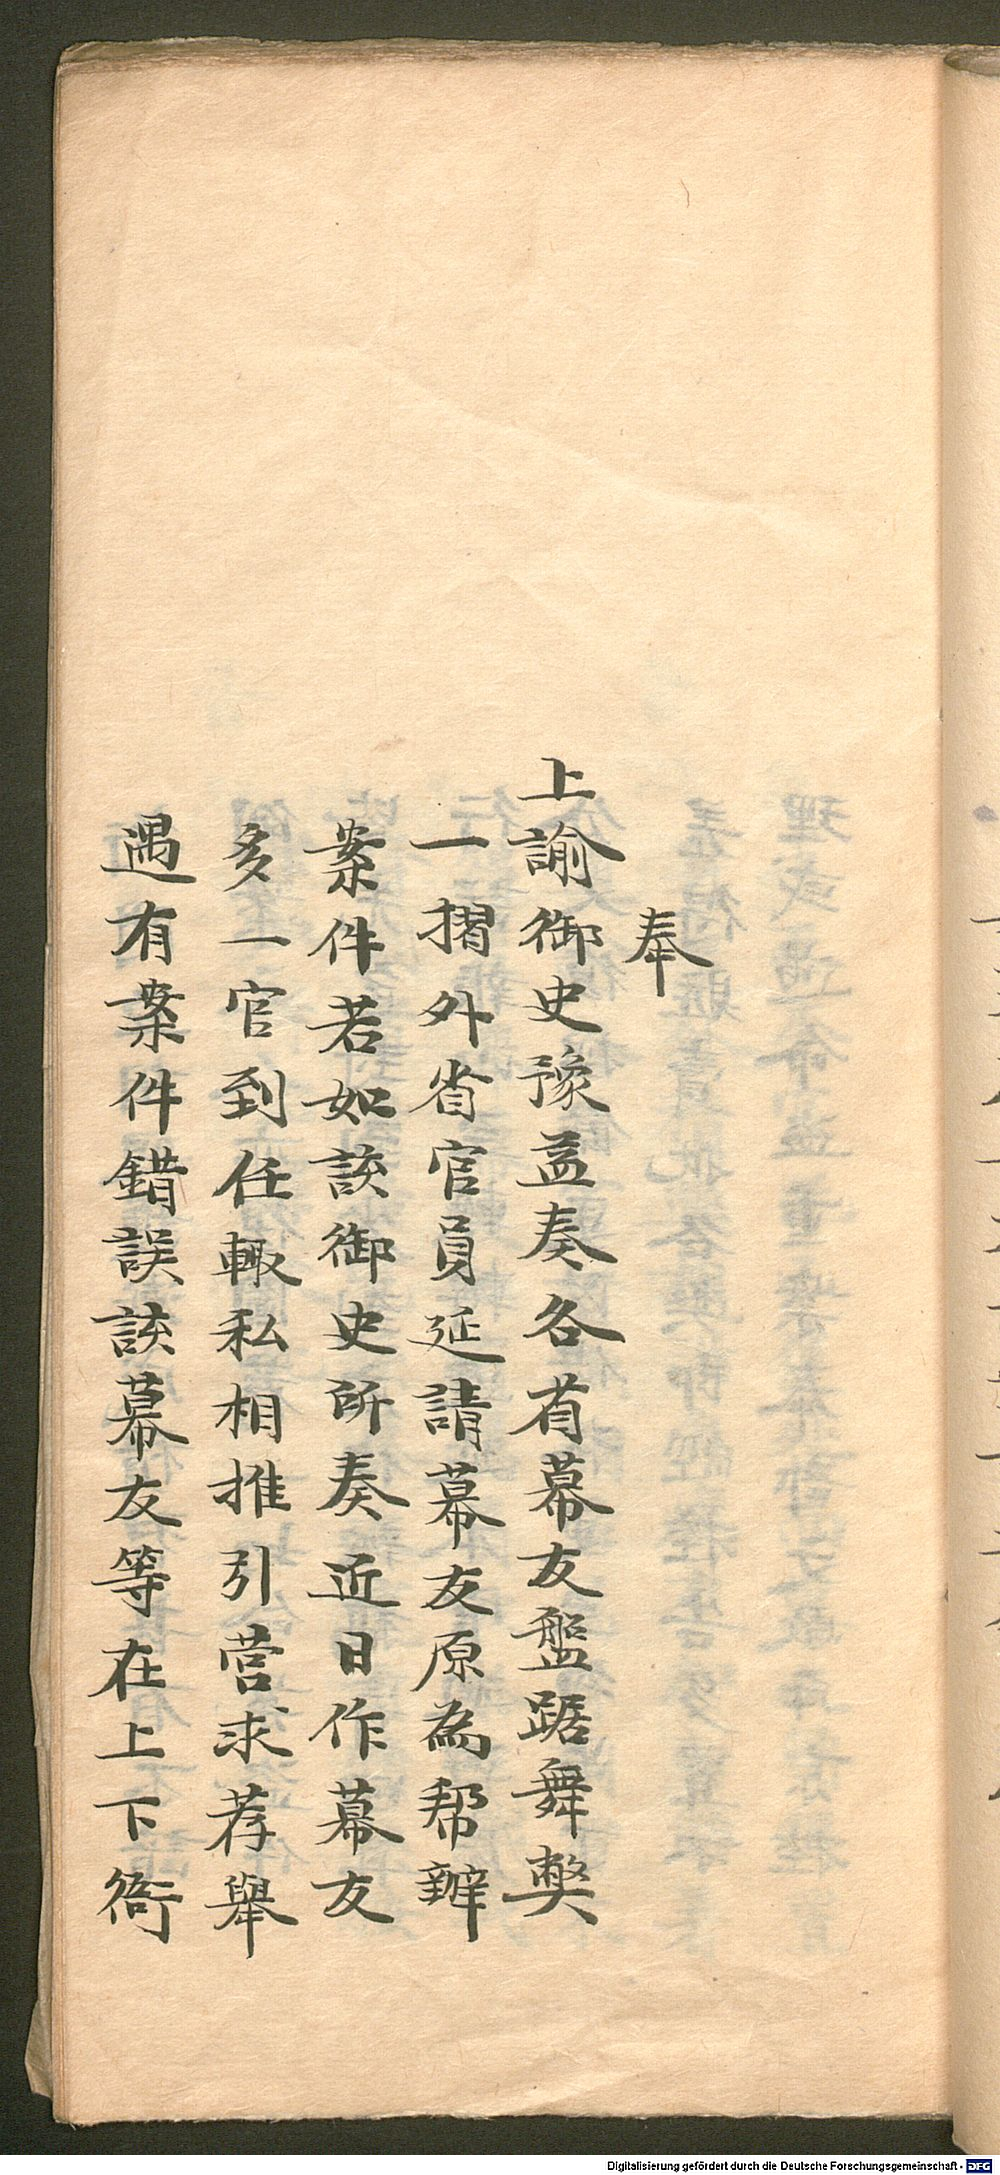 奉
上諭御史豫益奏各省幕友盤踞舞弊
一摺外省官員延請幕友原為帮辦
案件若如該御史所奏近日作幕友
多一官到任輙私相推引营求荐舉
遇有案件錯誤該幕友等在上下衙
Digitalisierung gefördert durch die Deutsche Forschungsgemeinschaft - DFG